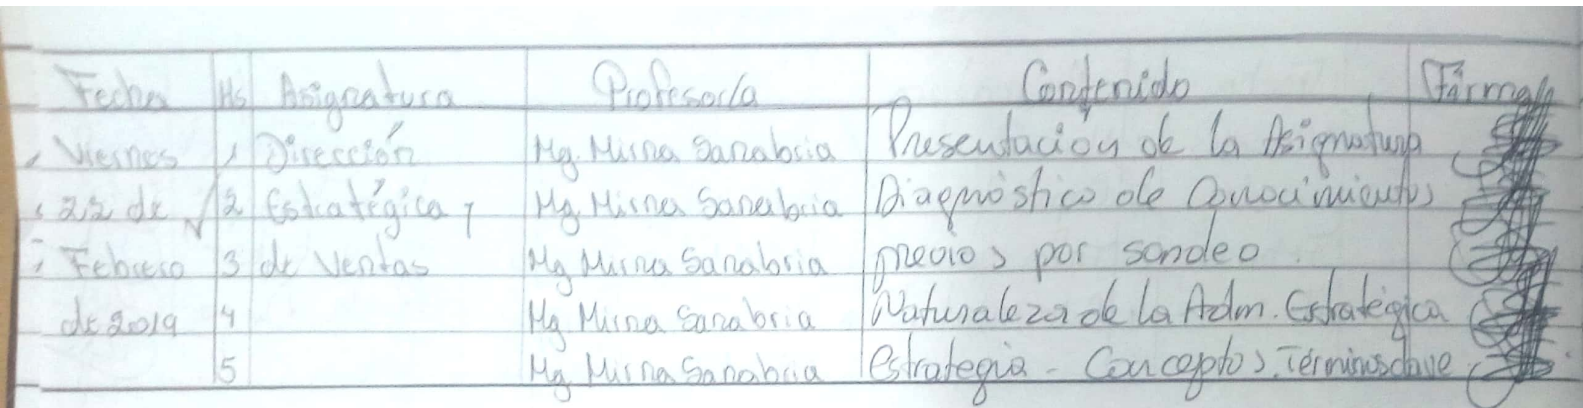 Fecha Hs Asignatura Profesor/a Contenido Firma
Viernes 1 Dirección Mg. Mirna Sanabria Presentación de la Asignatura
22 de 2 Estratégica y Mg. Mirna Sanabria Diagnóstico de Conocimientos
Febrero 3 de Ventas Mg Mirna Sanabria previos por sondeo.
de 2019 4 Mg Mirna Sanabria Naturaleza de la Adm. Estratégica
5 Mg Mirna Sanabria Estrategia - Conceptos, Términos clave